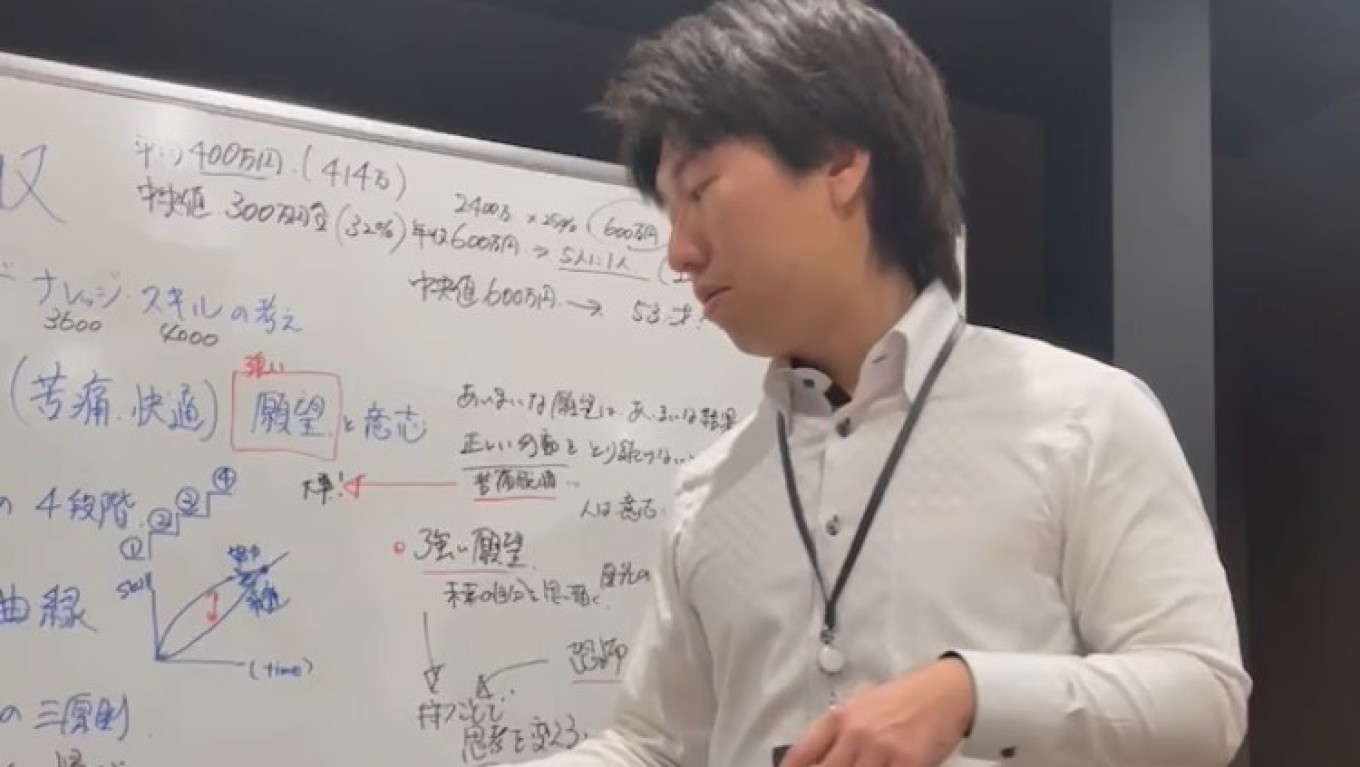 収
平均 400万円.(414万)
中央値. 300万円台(32%) 年収600万円 → 5人に1人
2400万 × 25% (600万円
中央値 600万円 → 53才
ナレッジ スキルの考え
3600 4000
(苦痛.快適) 願望と意志
強い
あいまいな願望は あいまいな結果
正しい行動をとり続けない
大事!
苦痛快適
人は意志
の 4段階
① ② ③ ④
強い願望
未来の自分を思い描く
曲線
skill
(time)
恐怖
持つことで
思考を変える
の 三原則